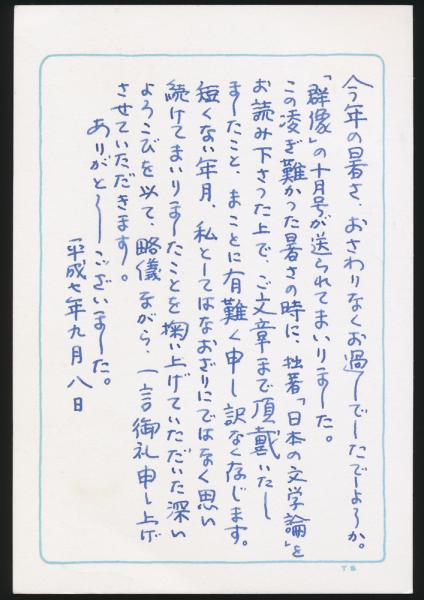 今年の暑さ、おさわりなくお過しでしたでしょうか。
「群像」の十月号が送られてまいりました。
この凌ぎ難かった暑さの時に、拙著「日本の文学論」を
お読み下さった上で、ご文章まで頂戴いたし
ましたこと、まことに有難く申し訳なく存じます。
短くない年月、私としてはなおざりにではなく思い
続けてまいりましたことを掬い上げていただいた深い
よろこびを以て、略儀ながら、一言御礼申し上げ
させていただきます。
ありがとうございました。
平成七年九月八日
TS